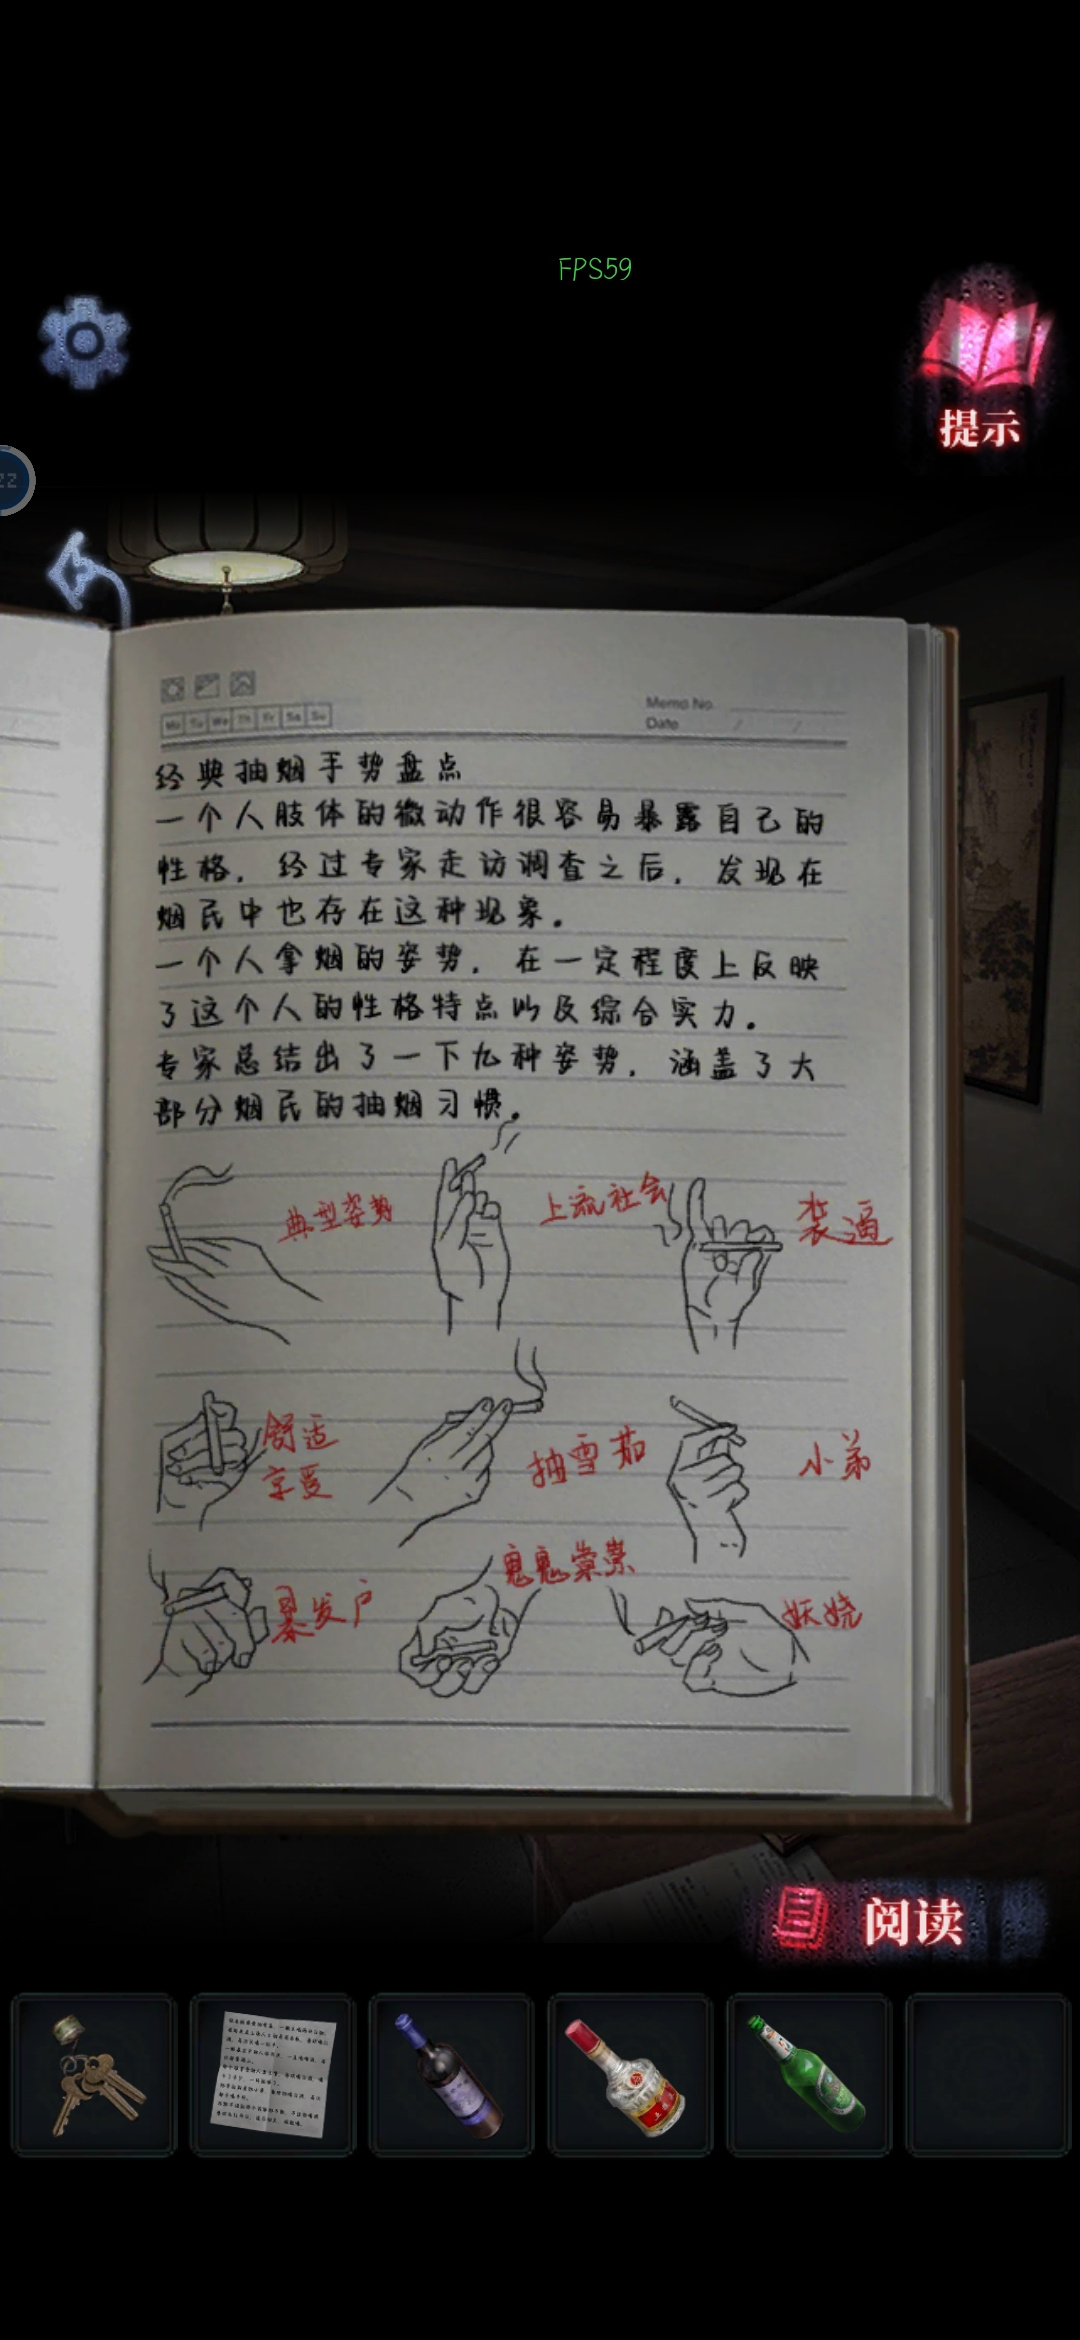 FPS59
提示
zz
Mo Tu We Th Fr Sa Su
Memo No.
Date / /
经典抽烟手势盘点
一个人肢体的微动作很容易暴露自己的
性格，经过专家走访调查之后，发现在
烟民中也存在这种现象。
一个人拿烟的姿势，在一定程度上反映
了这个人的性格特点以及综合实力。
专家总结出了一下九种姿势，涵盖了大
部分烟民的抽烟习惯。
典型姿势
上流社会
装逼
舒适
享受
抽雪茄
小弟
暴发户
鬼鬼祟祟
妖娆
阅读